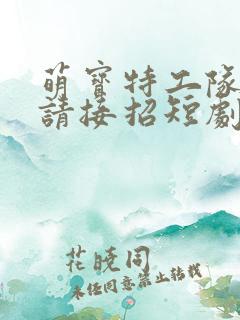 萌寶特工隊
請接招短劇
花曉同
未经同意禁止转载